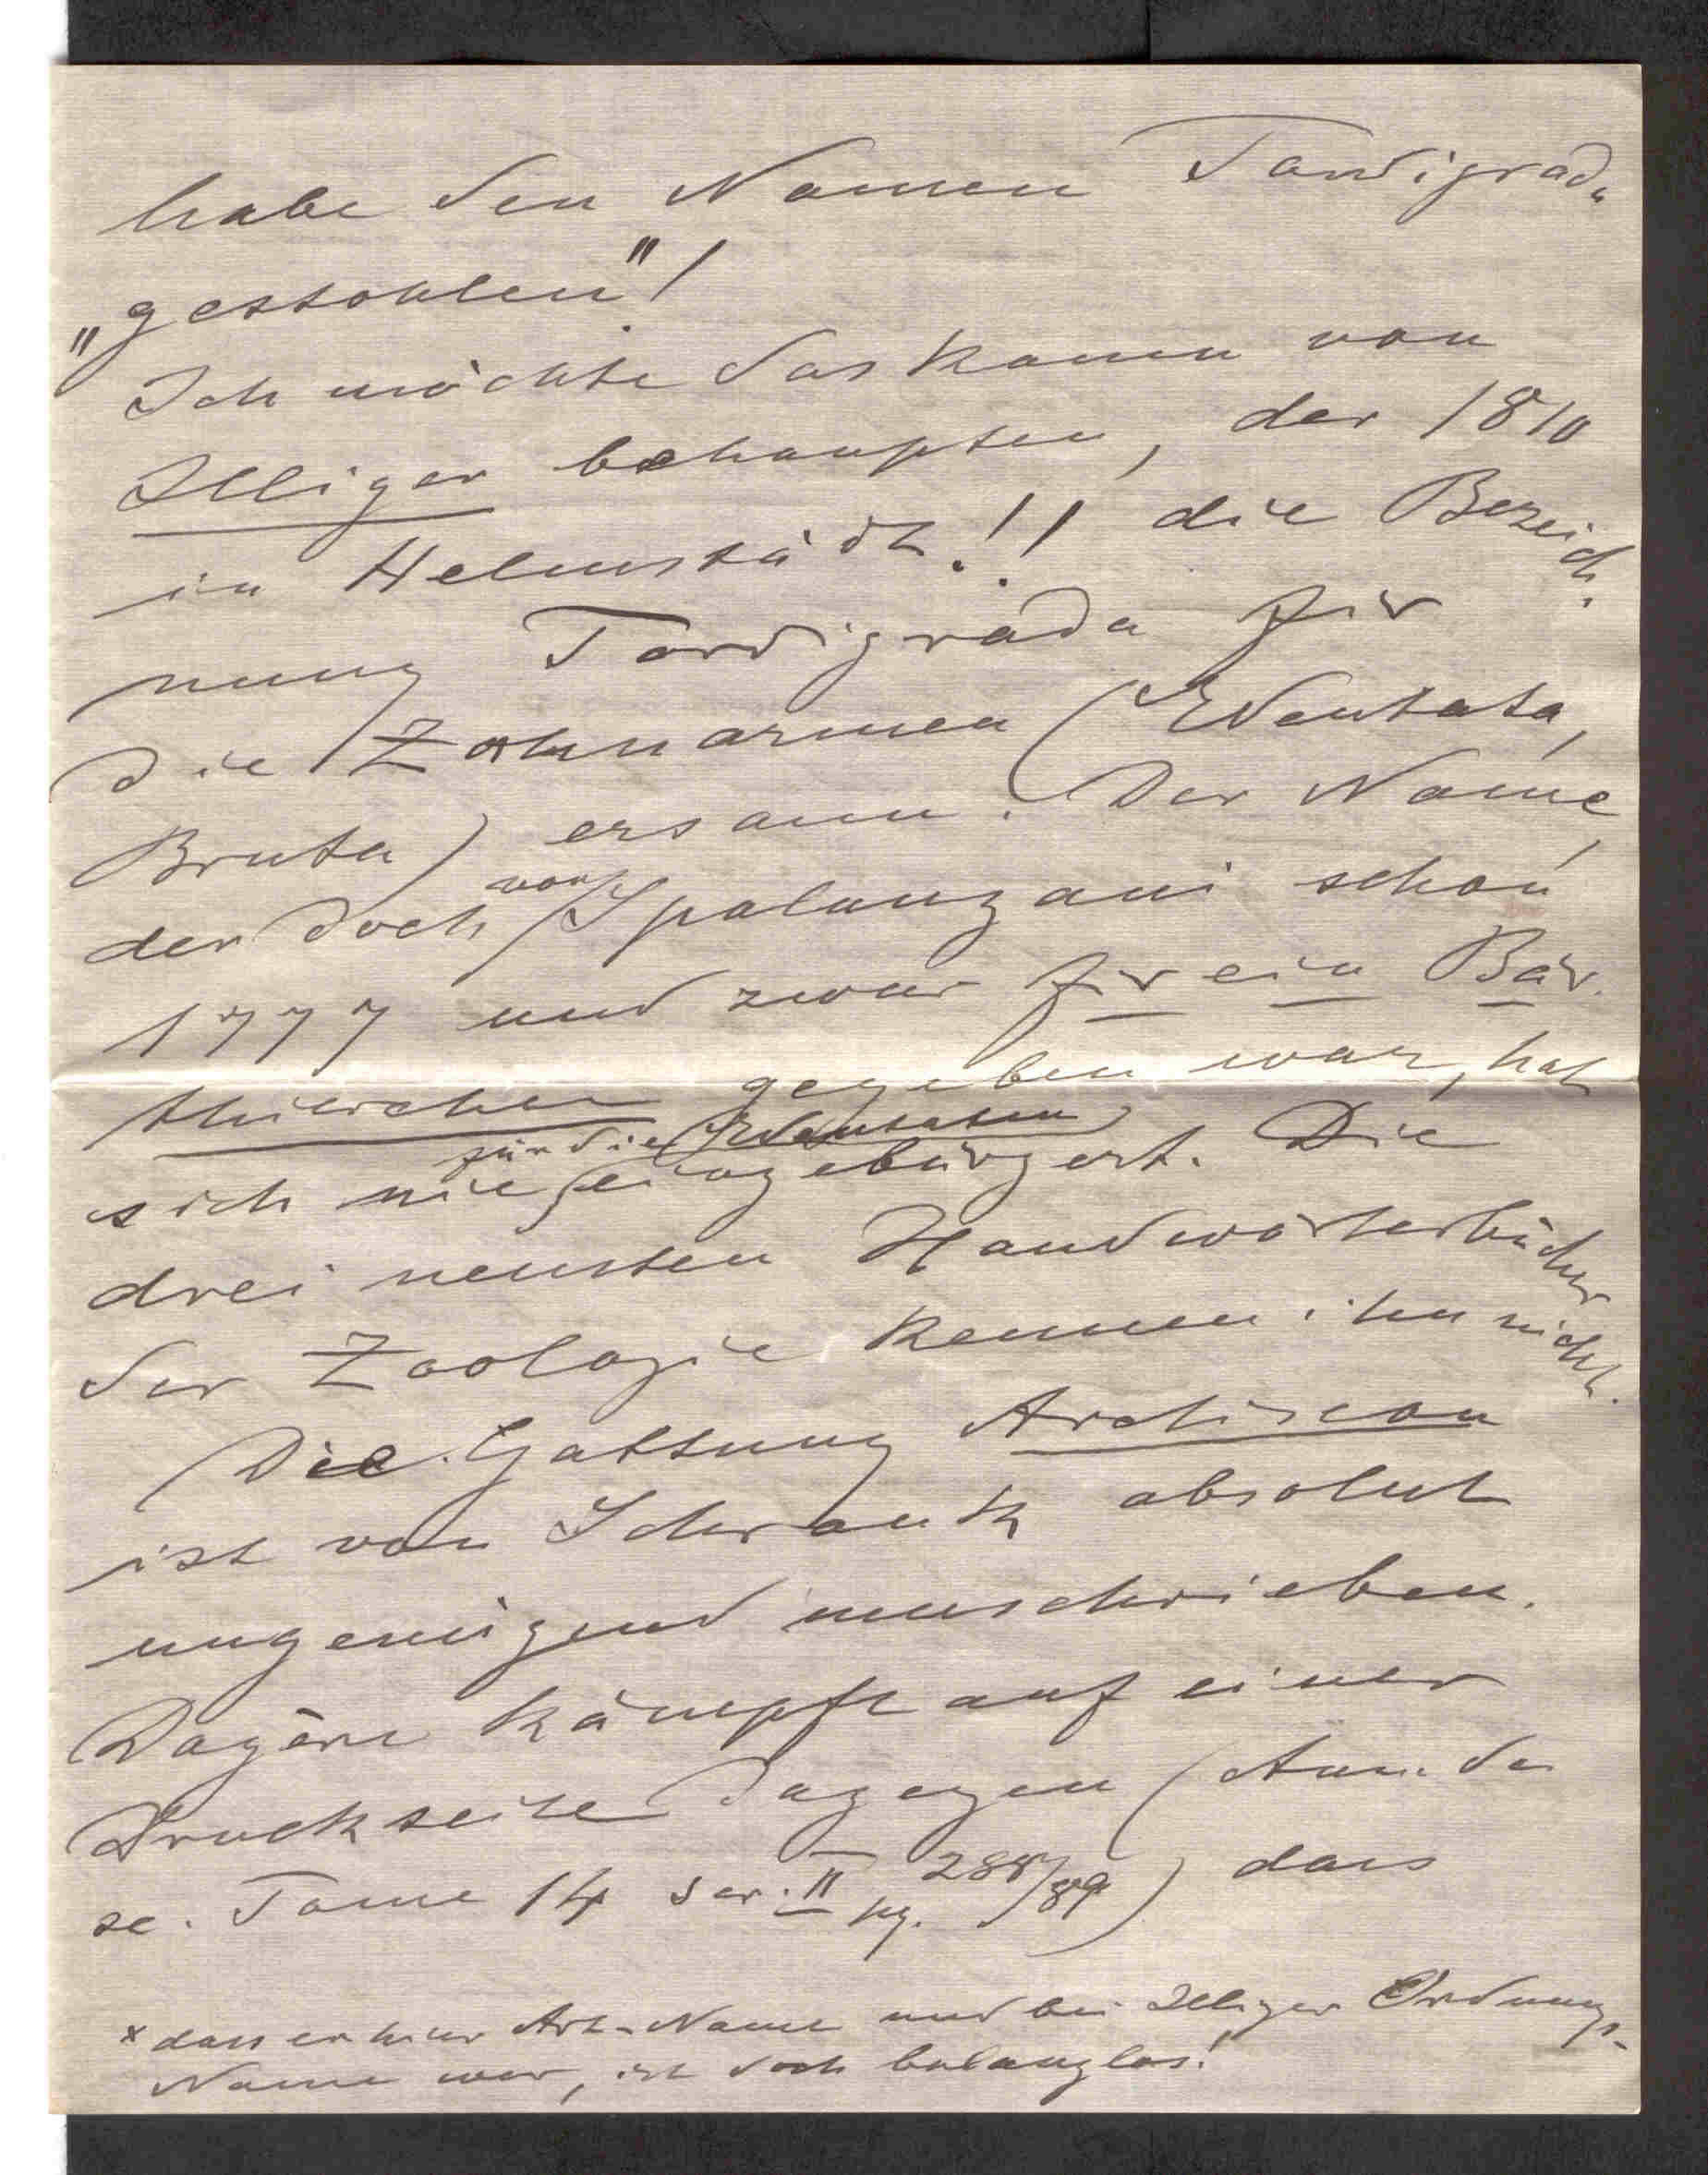 habe den Namen Tardigrada
„gestohlen"!
Ich möchte das kaum von
Illiger behaupten, der 1810
in Helmstädt!! die Bezeich-
nung Tardigrada für
die Zahnarmen (Edentata,
Bruta) ersann. Der Name,
der doch von Spalanzani schon
1777 und zwar für ein Bär-
thierchen gegeben war, hat
sich nie für die Edentaten eingebürgert. Die
drei neusten Handwörterbücher
der Zoologie kennen ihn nicht.
Die Gattung Arctiscon
ist von Schrank absolut
ungenügend umschrieben.
Doyère kämpft auf einer
Druckseite dagegen (Ann. des
sc. Tome 14 ser. II pg. 288/89) dass
x dass er hier Art-Name und bei Illiger Ordnungs-
Name war, ist doch belanglos!